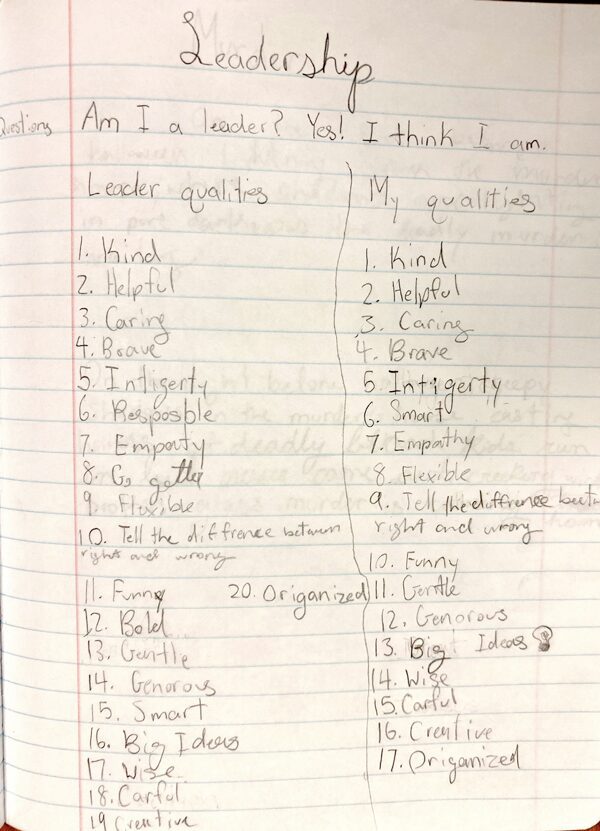 Leadership
Questions
Am I a leader? Yes! I think I am.
Leader qualities
1. Kind
2. Helpful
3. Caring
4. Brave
5. Intigerty
6. Resposble
7. Empaty
8. Go getter
9. Fluxible
10. Tell the diffrence between
right and wrong
11. Funny
12. Bold
13. Gentle
14. Genorous
15. Smart
16. Big Ideas
17. Wise
18. Carful
19 Creative
20. Origanized
My qualities
1. Kind
2. Helpful
3. Caring
4. Brave
5. Intigerty
6. Smart
7. Empathy
8. Flexible
9. Tell the diffrence
right and wrong
10. Funny
11. Gentle
12. Genorous
13. Big Ideas
14. Wise
15. Carful
16. Creative
17. Origanized